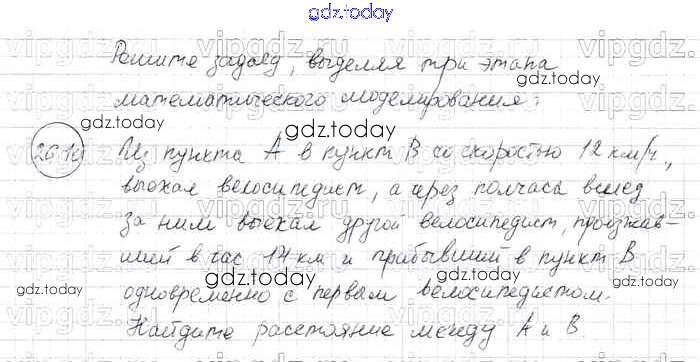 gdz.today
Решите задачу, выделяя три этапа
gdz.today
математического моделирования:
gdz.today
gdz.today
26.10 Из пункта А в пункт В со скоростью 12 км/ч,
выехал велосипедист, а через полчаса вслед
за ним выехал другой велосипедист, проезжав-
ший в час 14 км и прибывший в пункт В
gdz.today
gdz.today
одновременно с первым велосипедистом.
gdz.today
Найдите расстояние между А и В.